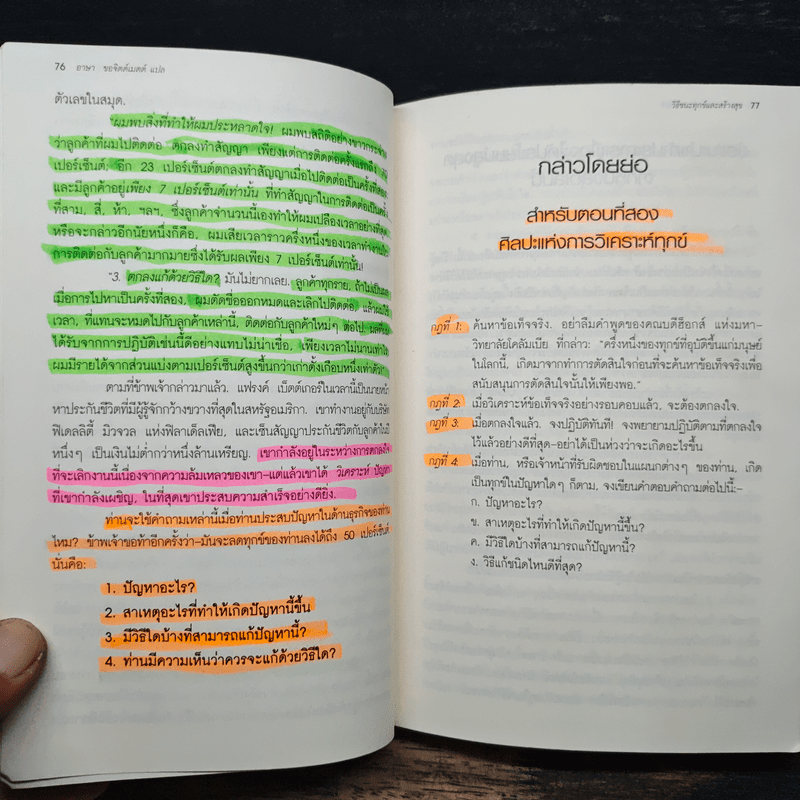 76 อาษา ขอจิตต์เมตต์ แปล
ตัวเลขในสมุด.
"ผมพบสิ่งที่ทำให้ผมประหลาดใจ! ผมพบสถิติอย่างขาวกระจ่าง
ว่าลูกค้าที่ผมไปติดต่อ ตกลงทำสัญญา เพียงแต่การติดต่อครั้งแรกถึง
เปอร์เซ็นต์; อีก 23 เปอร์เซ็นต์ตกลงทำสัญญาเมื่อไปติดต่อเป็นครั้งที่สอง
และมีลูกค้าอยู่เพียง 7 เปอร์เซ็นต์เท่านั้น ที่ทำสัญญาในการติดต่อเป็นครั้ง
ที่สาม, สี่, ห้า, ฯลฯ, ซึ่งลูกค้าจำนวนนี้เองทำให้ผมเปลืองเวลาอย่างที่สุด
หรือจะกล่าวอีกนัยหนึ่งก็คือ, ผมเสียเวลาราวครึ่งหนึ่งของเวลาทำงานใน
การติดต่อกับลูกค้ามากมายซึ่งได้รับผลเพียง 7 เปอร์เซ็นต์เท่านั้น!
"3. ตกลงแก้ด้วยวิธีใด? มันไม่ยากเลย. ลูกค้าทุกราย, ถ้าไม่เป็นผล
เมื่อการไปหาเป็นครั้งที่สอง, ผมตัดชื่อออกหมดและเลิกไปติดต่อ, แล้วผมใช้
เวลา, ที่แทนจะหมดไปกับลูกค้าเหล่านี้, ติดต่อกับลูกค้าใหม่ๆ ต่อไป. ผลที่ผม
ได้รับจากการปฏิบัติเช่นนี้ดีอย่างแทบไม่น่าเชื่อ, เพียงเวลาไม่นานเท่าใด
ผมมีรายได้จากส่วนแบ่งตามเปอร์เซ็นต์สูงขึ้นกว่าเก่าตั้งเกือบหนึ่งเท่าตัว"
ตามที่ข้าพเจ้ากล่าวมาแล้ว. แฟรงค์ เบ็ตต์เกอร์ในเวลานี้เป็นนายหน้า
หาประกันชีวิตที่มีผู้รู้จักกว้างขวางที่สุดในสหรัฐอเมริกา. เขาทำงานอยู่กับบริษัท
ฟิเดลลิตี้ มิวจวล แห่งฟิลาเด็ลเฟีย, และเซ็นสัญญาประกันชีวิตกับลูกค้าในปี
หนึ่งๆ เป็นเงินไม่ต่ำกว่าหนึ่งล้านเหรียญ. เขากำลังอยู่ในระหว่างการตกลงใจ
ที่จะเลิกงานนี้เนื่องจากความล้มเหลวของเขา–แต่แล้วเขาได้ วิเคราะห์ ปัญหา
ที่เขากำลังเผชิญ, ในที่สุดเขาประสบความสำเร็จอย่างดียิ่ง.
ท่านจะใช้คำถามเหล่านี้เมื่อท่านประสบปัญหาในด้านธุรกิจของท่าน
ไหม? ข้าพเจ้าขอท้าอีกครั้งว่า–มันจะลดทุกข์ของท่านลงได้ถึง 50 เปอร์เซ็นต์
นั่นคือ:
1. ปัญหาอะไร?
2. สาเหตุอะไรที่ทำให้เกิดปัญหานี้ขึ้น
3. มีวิธีใดบ้างที่สามารถแก้ปัญหานี้?
4. ท่านมีความเห็นว่าควรจะแก้ด้วยวิธีใด?
วิธีชนะทุกข์และสร้างสุข 77
กล่าวโดยย่อ
สำหรับตอนที่สอง
ศิลปะแห่งการวิเคราะห์ทุกข์
กฎที่ 1: ค้นหาข้อเท็จจริง. อย่าลืมคำพูดของคณบดีฮ็อกส์ แห่งมหา-
วิทยาลัยโคลัมเบีย ที่กล่าว: "ครึ่งหนึ่งของทุกข์ที่อุบัติขึ้นแก่มนุษย์
ในโลกนี้, เกิดมาจากการทำการตัดสินใจก่อนที่จะค้นหาข้อเท็จจริงเพื่อ
สนับสนุนการตัดสินใจนั้นให้เพียงพอ."
กฎที่ 2: เมื่อวิเคราะห์ข้อเท็จจริงอย่างรอบคอบแล้ว, จะต้องตกลงใจ.
กฎที่ 3: เมื่อตกลงใจแล้ว, จงปฏิบัติทันที! จงพยายามปฏิบัติตามที่ตกลงใจ
ไว้แล้วอย่างดีที่สุด–อย่าได้เป็นห่วงว่าจะเกิดอะไรขึ้น
กฎที่ 4: เมื่อท่าน, หรือเจ้าหน้าที่รับผิดชอบในแผนกต่างๆ ของท่าน, เกิด
เป็นทุกข์ในปัญหาใดๆ ก็ตาม, จงเขียนคำตอบคำถามต่อไปนี้:–
ก. ปัญหาอะไร?
ข. สาเหตุอะไรที่ทำให้เกิดปัญหานี้ขึ้น?
ค. มีวิธีใดบ้างที่สามารถแก้ปัญหานี้?
ง. วิธีแก้ชนิดไหนดีที่สุด?